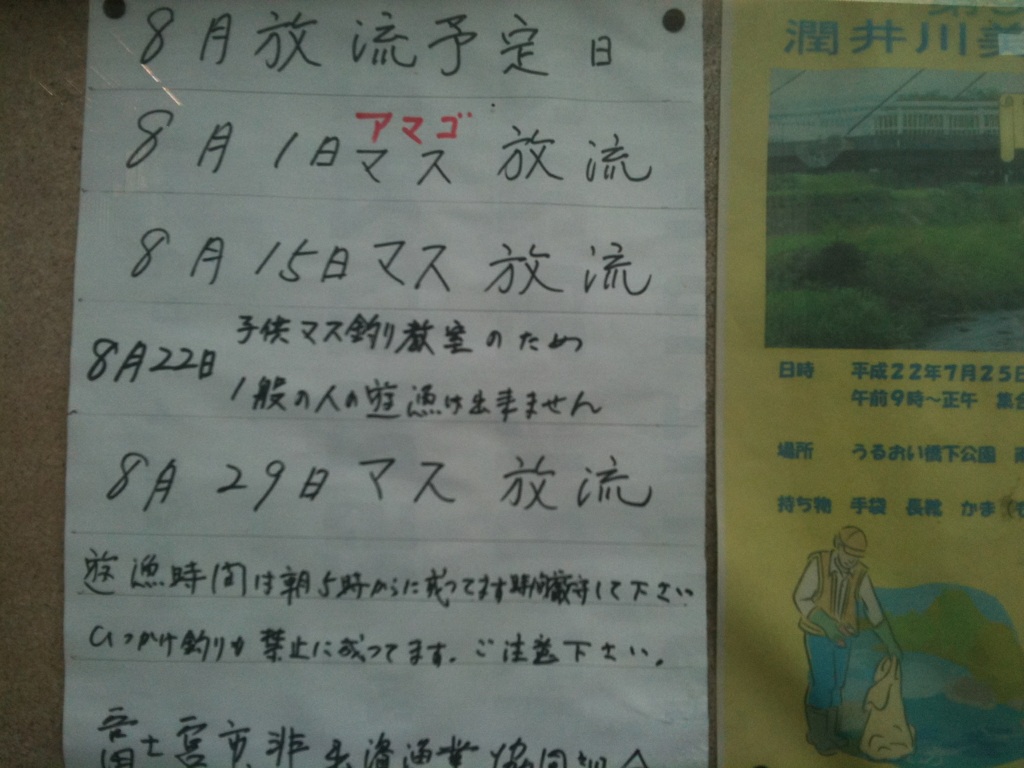 8月放流予定日
アマゴ
8月1日マス 放流
8月15日マス 放流
8月22日 子供マス釣り教室のため
1般の人の遊漁は出来ません
8月29日マス 放流
遊漁時間は朝5時からに成ってます時間厳守して下さい
ひっかけ釣りも禁止に成ってます。ご注意下さい。
富士宮市非出資漁業協同組合
潤井川美
日時 平成22年7月25日
午前9時～正午 集合
場所 うるおい橋下公園 雨
持ち物 手袋 長靴 かま